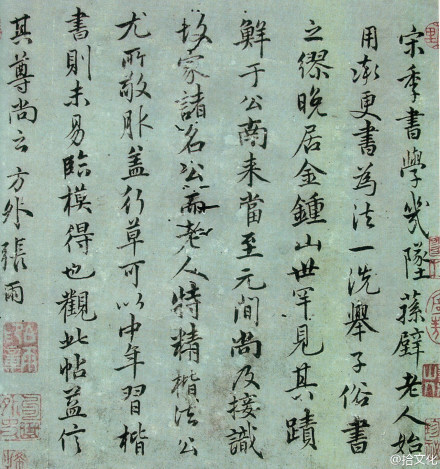 宋季書學幾墜蓀壁老人始
用更書為法一洗舉子俗書
之繆晚居金鍾山世罕見其蹟
鮮于公南来當至元間尚及接識
故家諸名公而老人特精楷法公
尤所敬服蓋行草可以中年習楷
書則未易臨模得也觀此帖益信
其尊尚云方外張雨
@拾文化